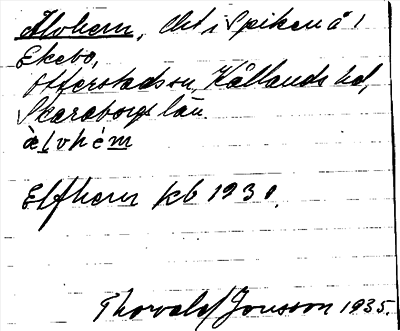 Alvhem, lht i Spiken å 1
Ekebo,
Otterstad sn, Kållands hd,
Skaraborgs län
àlvhém
Elfhem kb 1930.
Thorvald Jonsson 1935.